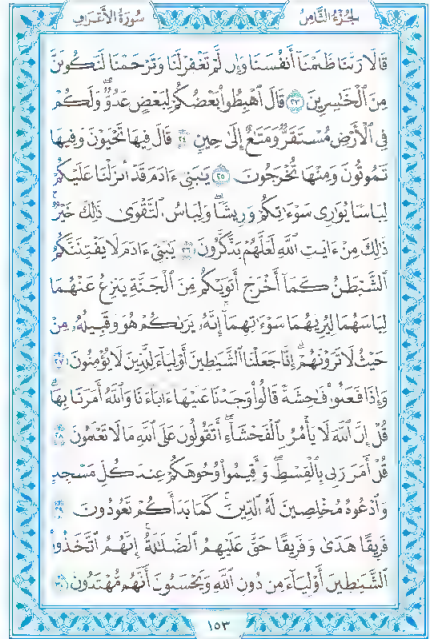 سُورَةُ الأَعْرَافِ
الجُزْءُ الثَّامِنُ
قَالَا رَبَّنَا ظَلَمْنَا أَنفُسَنَا وَإِن لَّمْ تَغْفِرْ لَنَا وَتَرْحَمْنَا لَنَكُونَنَّ
مِنَ ٱلْخَٰسِرِينَ ٢٣ قَالَ ٱهْبِطُوا۟ بَعْضُكُمْ لِبَعْضٍ عَدُوٌّ وَلَكُمْ
فِى ٱلْأَرْضِ مُسْتَقَرٌّ وَمَتَٰعٌ إِلَىٰ حِينٍ ٢٤ قَالَ فِيهَا تَحْيَوْنَ وَفِيهَا
تَمُوتُونَ وَمِنْهَا تُخْرَجُونَ ٢٥ يَٰبَنِىٓ ءَادَمَ قَدْ أَنزَلْنَا عَلَيْكُمْ
لِبَاسًا يُوَٰرِى سَوْءَٰتِكُمْ وَرِيشًا وَلِبَاسُ ٱلتَّقْوَىٰ ذَٰلِكَ خَيْرٌ
ذَٰلِكَ مِنْ ءَايَٰتِ ٱللَّهِ لَعَلَّهُمْ يَذَّكَّرُونَ ٢٦ يَٰبَنِىٓ ءَادَمَ لَا يَفْتِنَنَّكُمُ
ٱلشَّيْطَٰنُ كَمَآ أَخْرَجَ أَبَوَيْكُم مِّنَ ٱلْجَنَّةِ يَنزِعُ عَنْهُمَا
لِبَاسَهُمَا لِيُرِيَهُمَا سَوْءَٰتِهِمَآ إِنَّهُۥ يَرَىٰكُمْ هُوَ وَقَبِيلُهُۥ مِنْ
حَيْثُ لَا تَرَوْنَهُمْ إِنَّا جَعَلْنَا ٱلشَّيَٰطِينَ أَوْلِيَآءَ لِلَّذِينَ لَا يُؤْمِنُونَ ٢٧
وَإِذَا فَعَلُوا۟ فَٰحِشَةً قَالُوا۟ وَجَدْنَا عَلَيْهَآ ءَابَآءَنَا وَٱللَّهُ أَمَرَنَا بِهَا
قُلْ إِنَّ ٱللَّهَ لَا يَأْمُرُ بِٱلْفَحْشَآءِ أَتَقُولُونَ عَلَى ٱللَّهِ مَا لَا تَعْلَمُونَ ٢٨
قُلْ أَمَرَ رَبِّى بِٱلْقِسْطِ وَأَقِيمُوا۟ وُجُوهَكُمْ عِندَ كُلِّ مَسْجِدٍ
وَٱدْعُوهُ مُخْلِصِينَ لَهُ ٱلدِّينَ كَمَا بَدَأَكُمْ تَعُودُونَ ٢٩
فَرِيقًا هَدَىٰ وَفَرِيقًا حَقَّ عَلَيْهِمُ ٱلضَّلَٰلَةُ إِنَّهُمُ ٱتَّخَذُوا۟
ٱلشَّيَٰطِينَ أَوْلِيَآءَ مِن دُونِ ٱللَّهِ وَيَحْسَبُونَ أَنَّهُم مُّهْتَدُونَ ٣٠
١٥٣